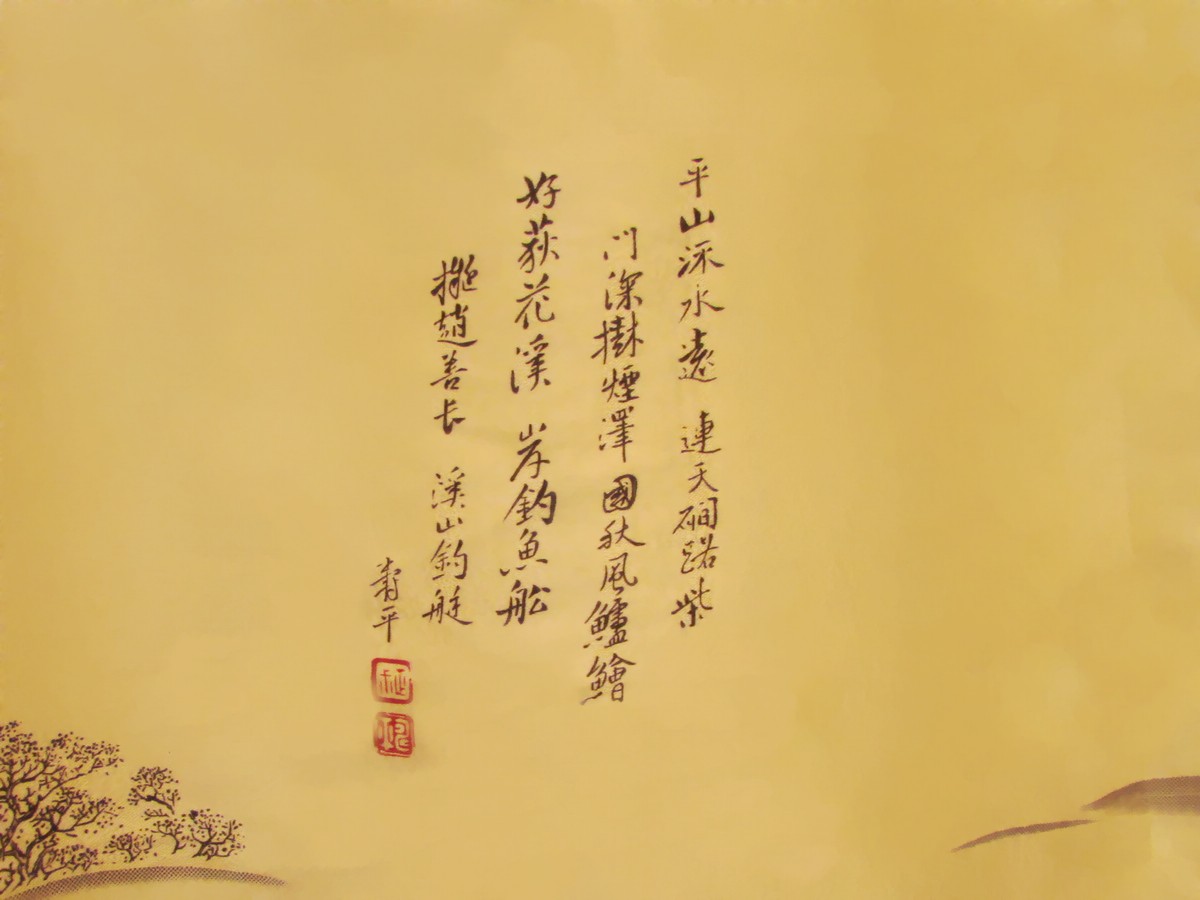 平山泝水遠 連天磵路柴
門深樹煙澤國秋風鱸鱠
好荻花溪 岸釣魚舩
擬趙善长 溪山釣艇
壽平